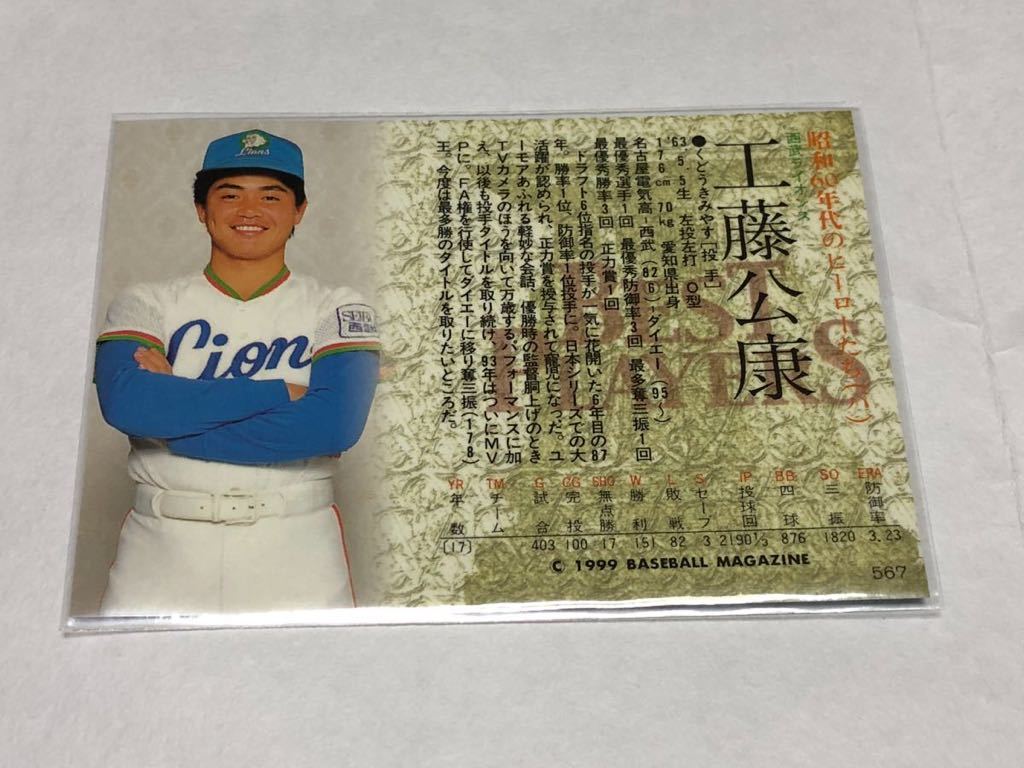 昭和60年代のヒーローたち(パ)
西武ライオンズ
工藤公康
BEST PLAYERS
●くどうきみやす[投手]
'63 5・5生 左投左打 O型
176cm 70kg 愛知県出身
名古屋電気高―西武('82 6)―ダイエー('95〜)
最優秀選手1回 最優秀防御率3回 最多奪三振1回
最優秀勝率3回 正力賞1回
ドラフト6位指名の投手が一気に花開いた6年目の87
年。勝率1位、防御率1位投手に。日本シリーズでの大
活躍が認められ、正力賞を授与されて寵児になった。ユ
ーモアあふれる軽妙な会話、優勝時の監督胴上げのとき
TVカメラのほうを向いて万歳するパフォーマンスに加
え、以後も投手タイトルを取り続け、93年はついにMV
Pに。FA権を行使してダイエーに移り奪三振(178)
王。今度は最多勝のタイトルを取りたいところだ。
YR TM G CG SHO W L S IP BB SO ERA
年数 チーム 試合 完投 無点勝 勝利 敗戦 セーブ 投球回 四球 三振 防御率
(17) 403 100 17 151 82 3 2190⅓ 876 1820 3.23
© 1999 BASEBALL MAGAZINE
567
Lions
Lions
SEIBU
西武